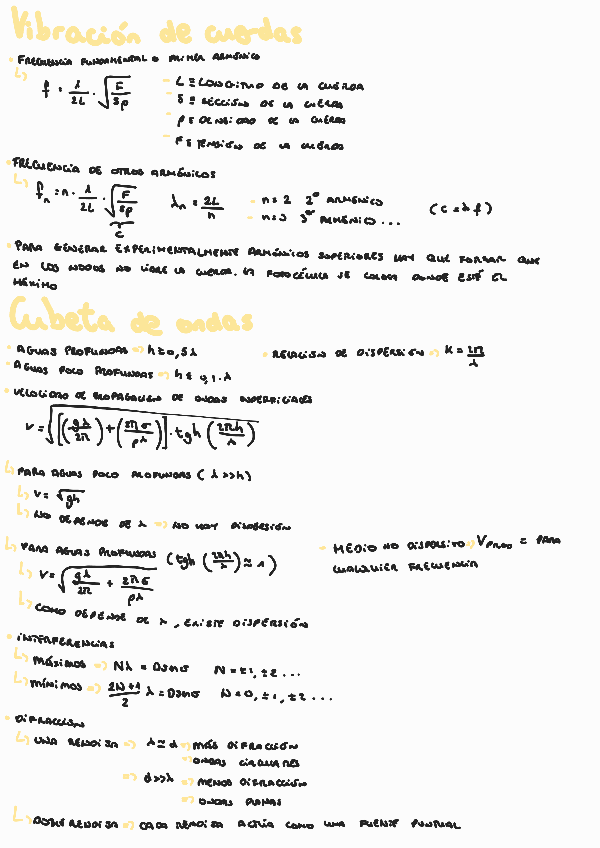 Vibración de cuerdas
• FRECUENCIA FUNDAMENTAL O PRIMER ARMÓNICO
↳ f = 1/2L · √(F/Sρ) - L ≡ LONGITUD DE LA CUERDA
- S ≡ SECCIÓN DE LA CUERDA
- ρ ≡ DENSIDAD DE LA CUERDA
- F ≡ TENSIÓN DE LA CUERDA
• FRECUENCIA DE OTROS ARMÓNICOS
↳ fₙ = n · 1/2L · √(F/Sρ) λₙ = 2L/n - n = 2 2º ARMÓNICO (c = λ f)
c - n = 3 3º ARMÓNICO ...
• PARA GENERAR EXPERIMENTALMENTE ARMÓNICOS SUPERIORES HAY QUE FORZAR QUE
EN LOS NODOS NO VIBRE LA CUERDA. LA FOTOCÉLULA SE COLOCA DONDE ESTÉ EL
MÁXIMO
Cubeta de ondas
• AGUAS PROFUNDAS ⇒ h ≥ 0,5 λ • RELACIÓN DE DISPERSIÓN ⇒ K = 2π/λ
• AGUAS POCO PROFUNDAS ⇒ h ≤ 0,1 · λ
• VELOCIDAD DE PROPAGACIÓN DE ONDAS SUPERFICIALES
v = √([(gλ/2π) + (2πσ/ρλ)] · tgh (2πh/λ))
↳ PARA AGUAS POCO PROFUNDAS (λ >> h)
↳ v = √gh
↳ NO DEPENDE DE λ ⇒ NO HAY DISPERSIÓN
↳ PARA AGUAS PROFUNDAS (tgh (2πh/λ) ≈ 1) - MEDIO NO DISPERSIVO ⇒ V PROP = PARA
CUALQUIER FRECUENCIA
↳ v = √(gλ/2π + 2πσ/ρλ)
↳ COMO DEPENDE DE λ, EXISTE DISPERSIÓN
• INTERFERENCIAS
↳ MÁXIMOS ⇒ Nλ = Dsenθ N = ±1, ±2 ...
↳ MÍNIMOS ⇒ 2N+1/2 λ = Dsenθ N = 0, ±1, ±2 ...
• DIFRACCIÓN
↳ UNA RENDIJA ⇒ λ ≅ d ⇒ MÁS DIFRACCIÓN
⇒ ONDAS CIRCULARES
⇒ d >> λ ⇒ MENOS DIFRACCIÓN
⇒ ONDAS PLANAS
↳ DOBLE RENDIJA ⇒ CADA RENDIJA ACTÚA COMO UNA FUENTE PUNTUAL